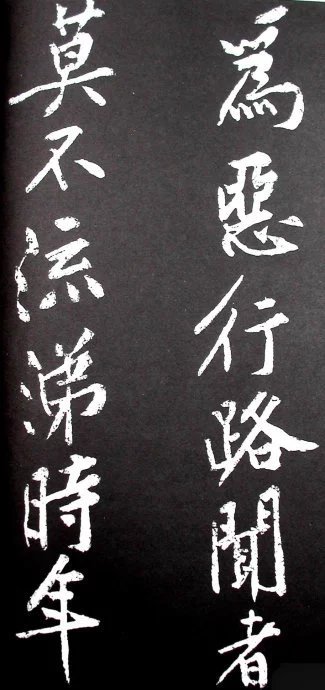 為惡行路聞者
莫不流涕時年